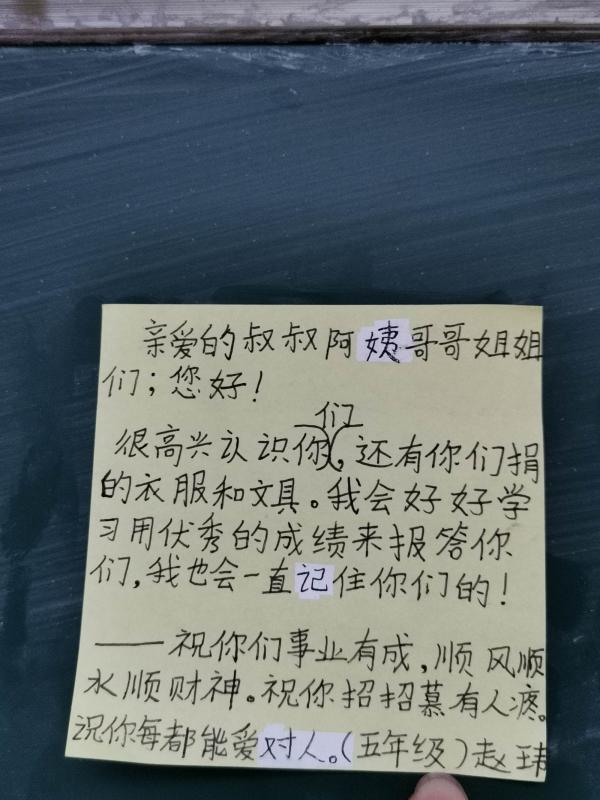 亲爱的叔叔阿姨哥哥姐姐
们；您好！
很高兴认识你们，还有你们捐
的衣服和文具。我会好好学
习用优秀的成绩来报答你
们，我也会一直记住你们的！
——祝你们事业有成，顺风顺
水顺财神。祝你招招慕有人疼。
祝你每都能爱对人。（五年级）赵玮